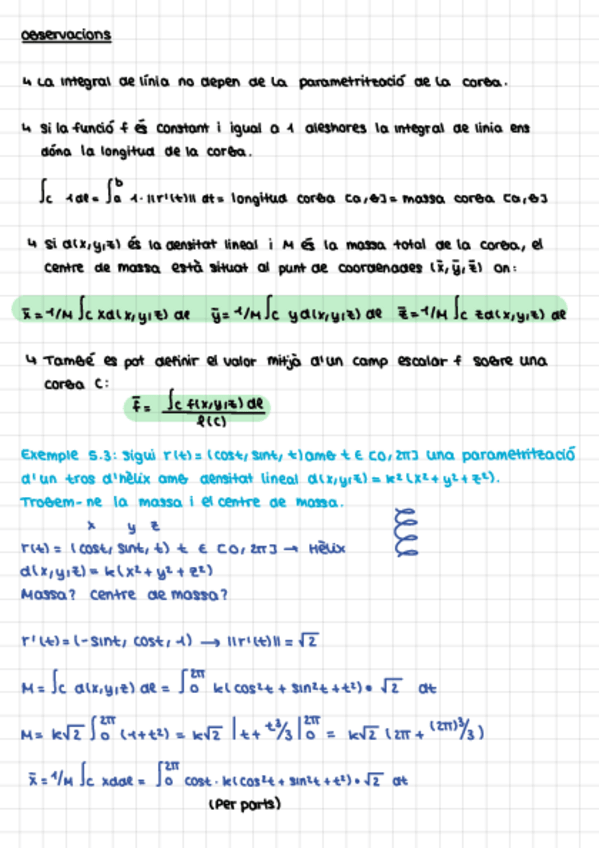 Observacions
↳ La integral de línia no depen de la parametrització de la corba.
↳ Si la funció f és constant i igual a 1 aleshores la integral de línia ens
dóna la longitud de la corba.
∫c 1dl = ∫a^b 1·||r'(t)|| dt = longitud corba [a,b] = massa corba [a,b]
↳ Si d(x,y,z) és la densitat lineal i M és la massa total de la corba, el
centre de massa està situat al punt de coordenades (x̄, ȳ, z̄) on:
x̄ = 1/M ∫c xd(x,y,z) dl ȳ = 1/M ∫c yd(x,y,z) dl z̄ = 1/M ∫c zd(x,y,z) dl
↳ També es pot definir el valor mitjà d'un camp escalar f sobre una
corba C:
f̄ = ∫c f(x,y,z) dl / l(C)
Exemple 5.3: Sigui r(t) = (cost, sint, t) amb t ∈ [0, 2π] una parametrització
d'un tros d'hèlix amb densitat lineal d(x,y,z) = k²(x²+y²+z²).
Trobem-ne la massa i el centre de massa.
x y z
r(t) = (cost, sint, t) t ∈ [0, 2π] → Hèlix
d(x,y,z) = k(x²+y²+z²)
Massa? Centre de massa?
r'(t) = (-sint, cost, 1) → ||r'(t)|| = √2
M = ∫c d(x,y,z) dl = ∫0^2π k(cos²t + sin²t + t²)·√2 dt
M = k√2 ∫0^2π (1+t²) = k√2 |t + t³/3|0^2π = k√2 (2π + (2π)³/3)
x̄ = 1/M ∫c xddl = ∫0^2π cost·k(cos²t + sin²t + t²)·√2 dt
(Per parts)